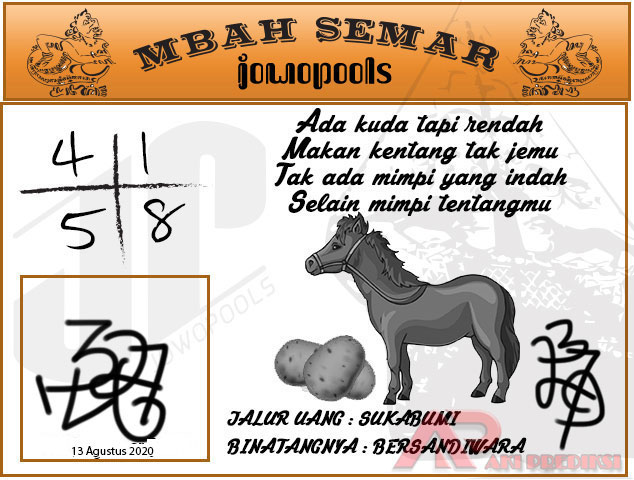 MBAH SEMAR
jowopools
4 1
5 8
Ada kuda tapi rendah
Makan kentang tak jemu
Tak ada mimpi yang indah
Selain mimpi tentangmu
JALUR UANG : SUKABUMI
BINATANGNYA : BERSANDIWARA
13 Agustus 2020
JOWOPOOLS
AP